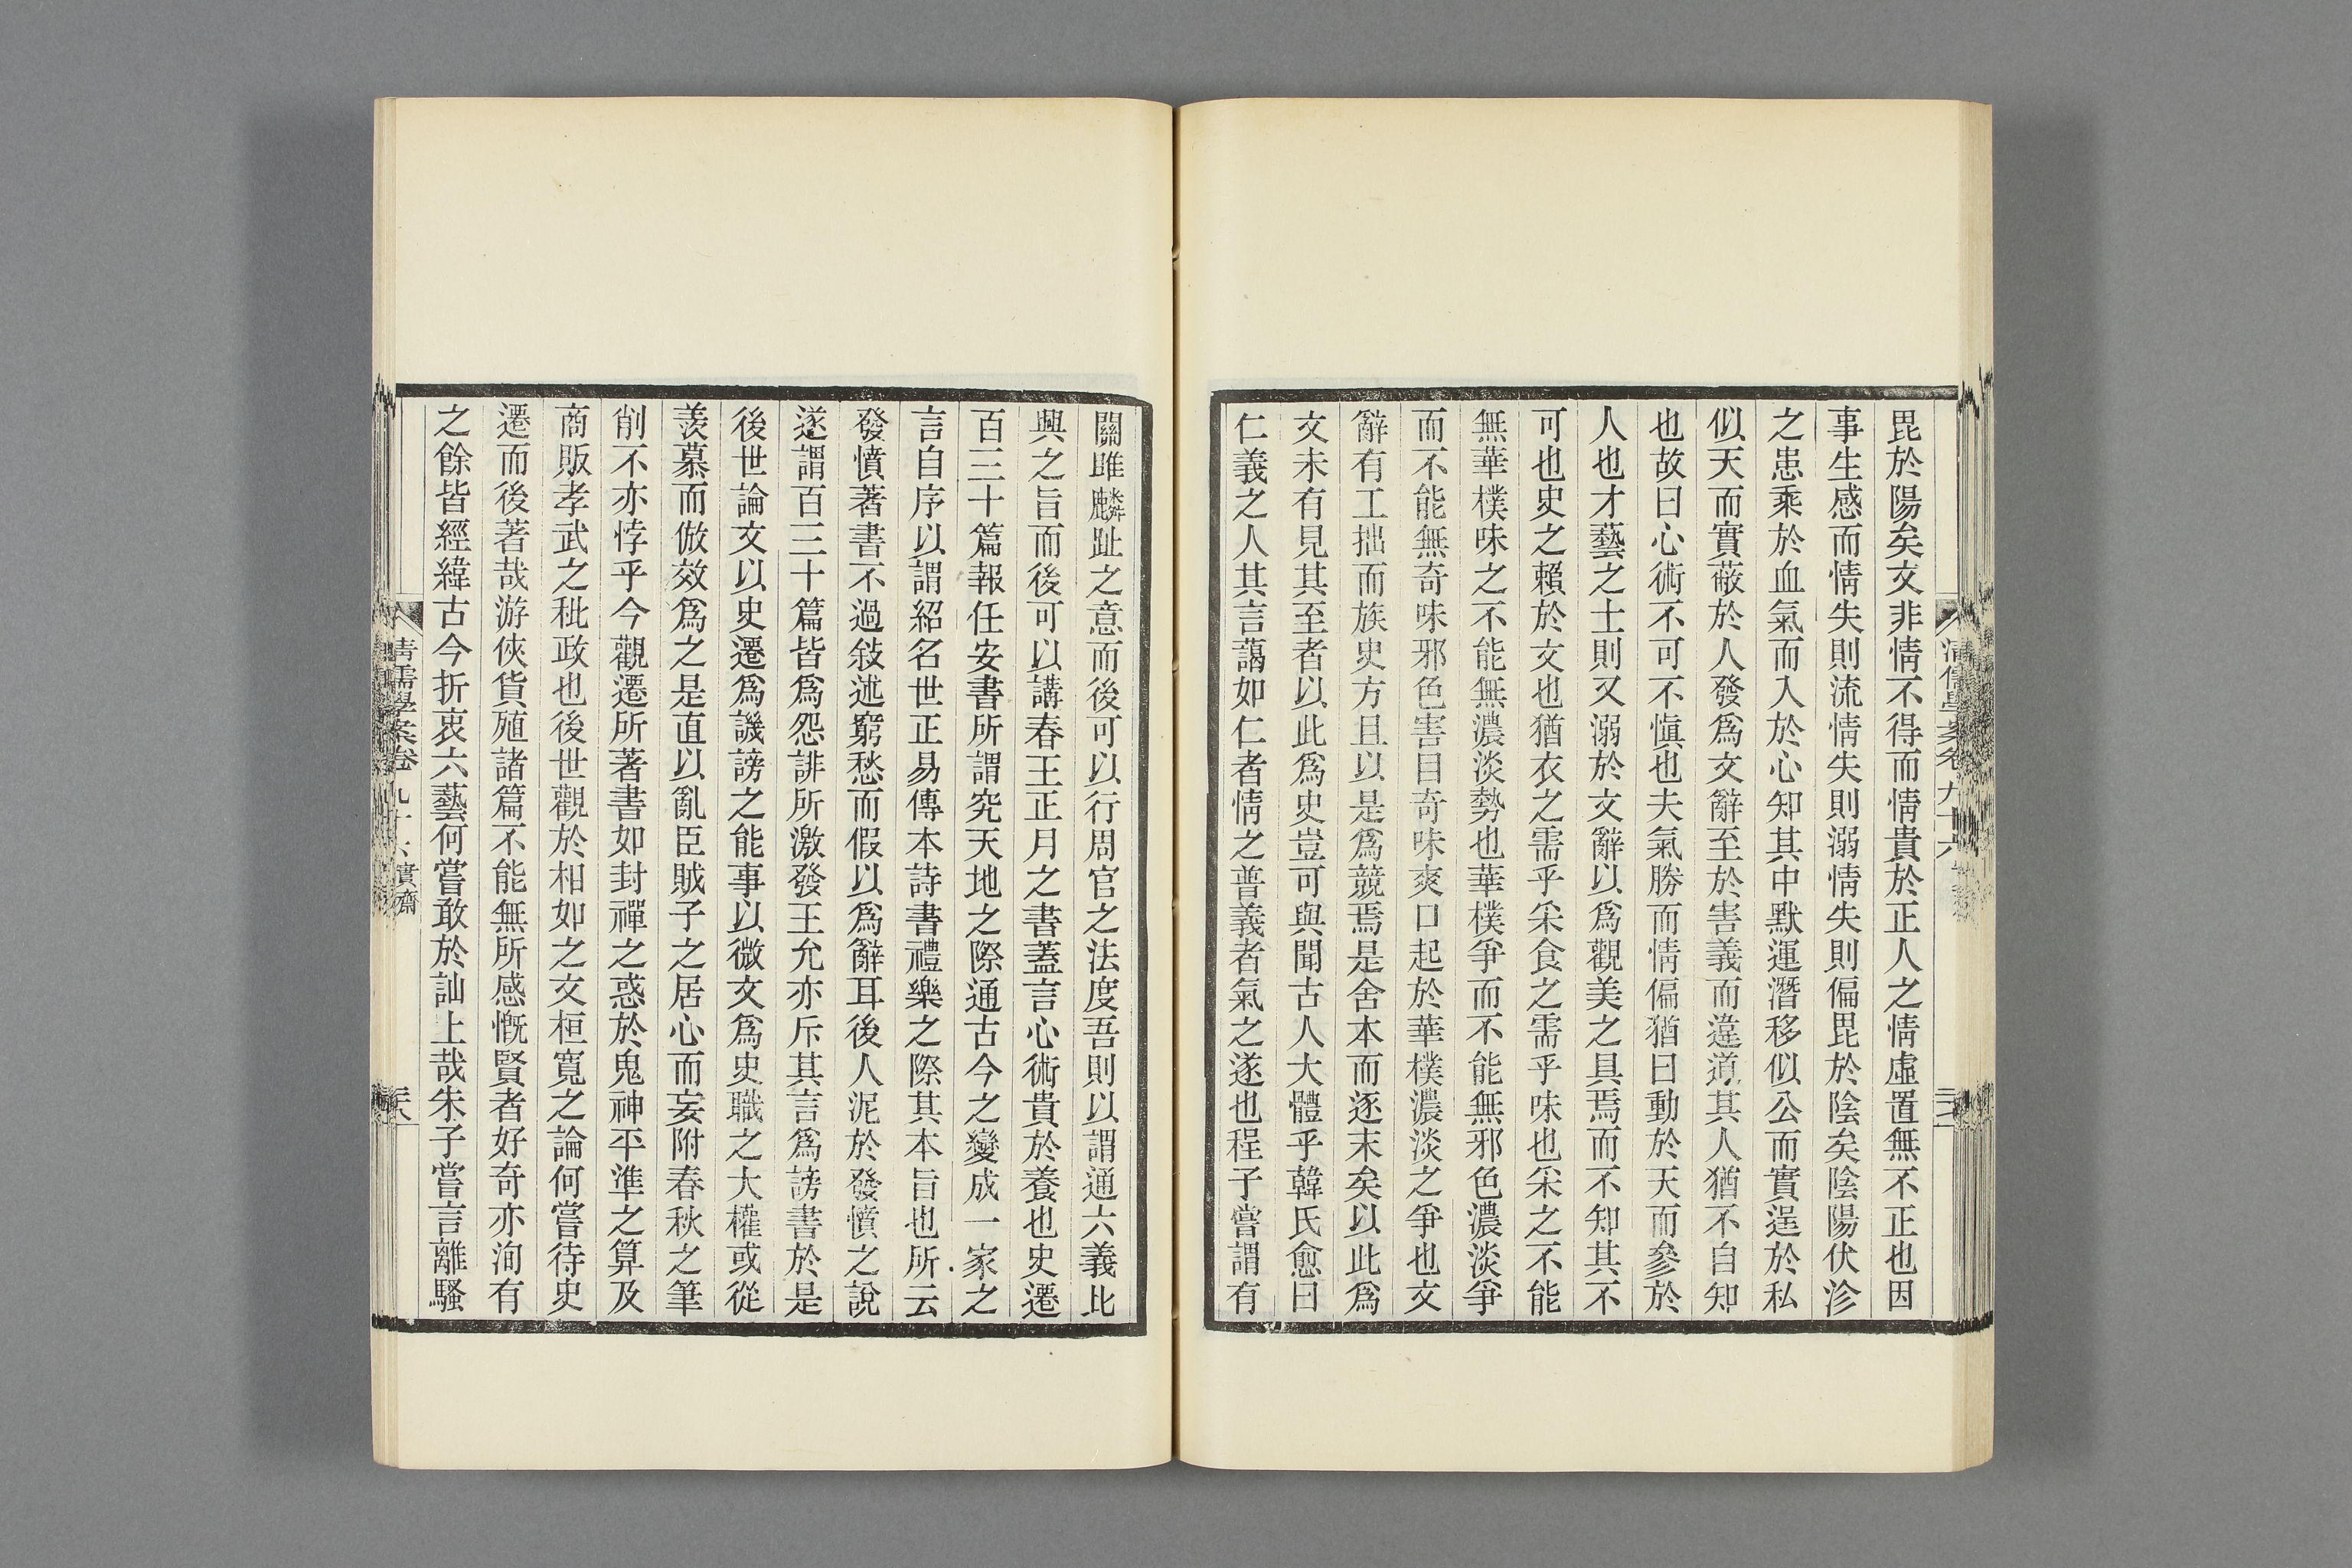 毘於陽矣文非情不得而情貴於正人之情虛置無不正也因
事生感而情失則流情失則溺情失則偏毘於陰矣陰陽伏沴
之患乘於血氣而入於心知其中默運潛移似公而實逞於私
似天而實蔽於人發爲文辭至於害義而違道其人猶不自知
也故曰心術不可不愼也夫氣勝而情偏猶曰動於天而參於
人也才藝之士則又溺於文辭以爲觀美之具焉而不知其不
可也史之賴於文也猶衣之需乎采食之需乎味也采之不能
無華樸味之不能無濃淡勢也華樸爭而不能無邪色濃淡爭
而不能無奇味邪色害目奇味爽口起於華樸濃淡之爭也文
辭有工拙而族史方且以是爲競焉是舍本而逐末矣以此爲
文未有見其至者以此爲史豈可與聞古人大體乎韓氏愈曰
仁義之人其言藹如仁者情之普義者氣之遂也程子嘗謂有
關雎麟趾之意而後可以行周官之法度吾則以謂通六義比
興之旨而後可以講春王正月之書蓋言心術貴於養也史遷
百三十篇報任安書所謂究天地之際通古今之變成一家之
言自序以謂紹名世正易傳本詩書禮樂之際其本旨也所云
發憤著書不過敍述窮愁而假以爲辭耳後人泥於發憤之說
遂謂百三十篇皆爲怨誹所激發王允亦斥其言爲謗書於是
後世論文以史遷爲譏謗之能事以微文爲史職之大權或從
羨慕而倣效爲之是直以亂臣賊子之居心而妄附春秋之筆
削不亦悖乎今觀遷所著書如封禪之惑於鬼神平準之算及
商販孝武之秕政也後世觀於相如之文桓寬之論何嘗待史
遷而後著哉游俠貨殖諸篇不能無所感慨賢者好奇亦洵有
之餘皆經緯古今折衷六藝何嘗敢於訕上哉朱子嘗言離騷
清儒學案卷九十六 實齋